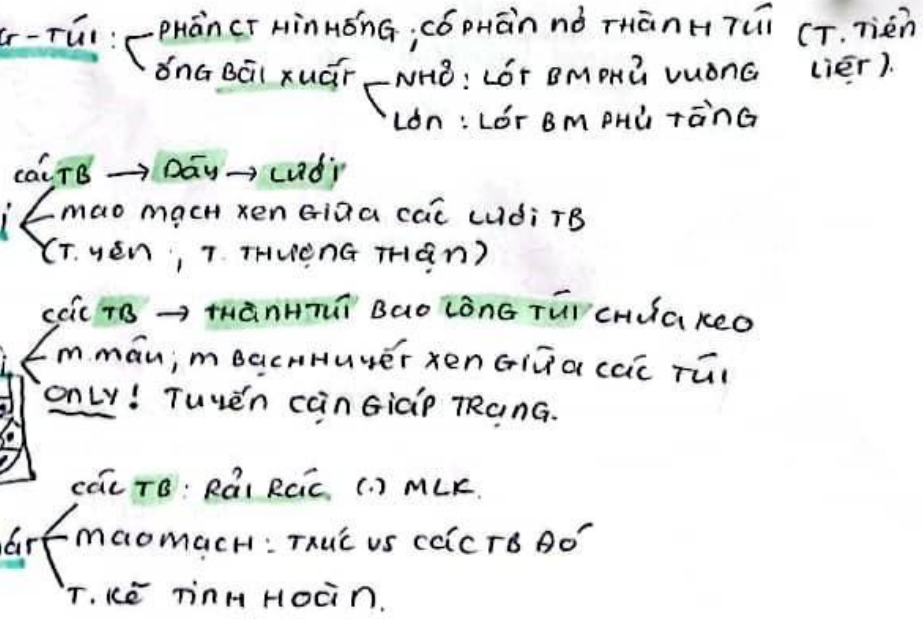 -TÚI: PHẦN CT HÌNH ỐNG, CÓ PHẦN NỞ THÀNH TÚI (T. TIỀN LIỆT).
ỐNG BÀI XUẤT
NHỎ: LÓT BM PHỦ VUÔNG
LỚN: LÓT BM PHỦ TẦNG
CÁC TB → DÃY → LƯỚI
MAO MẠCH XEN GIỮA CÁC LƯỚI TB
(T. YÊN, T. THƯỢNG THẬN)
CÁC TB → THÀNH TÚI BAO LÒNG TÚI CHỨA KEO
M. MÁU, M BẠCH HUYẾT XEN GIỮA CÁC TÚI
ONLY! TUYẾN CẬN GIÁP TRẠNG.
CÁC TB: RẢI RÁC (.) MLK.
MAO MẠCH: TXÚC VS CÁC TB ĐÓ
T. KẼ TINH HOÀN.